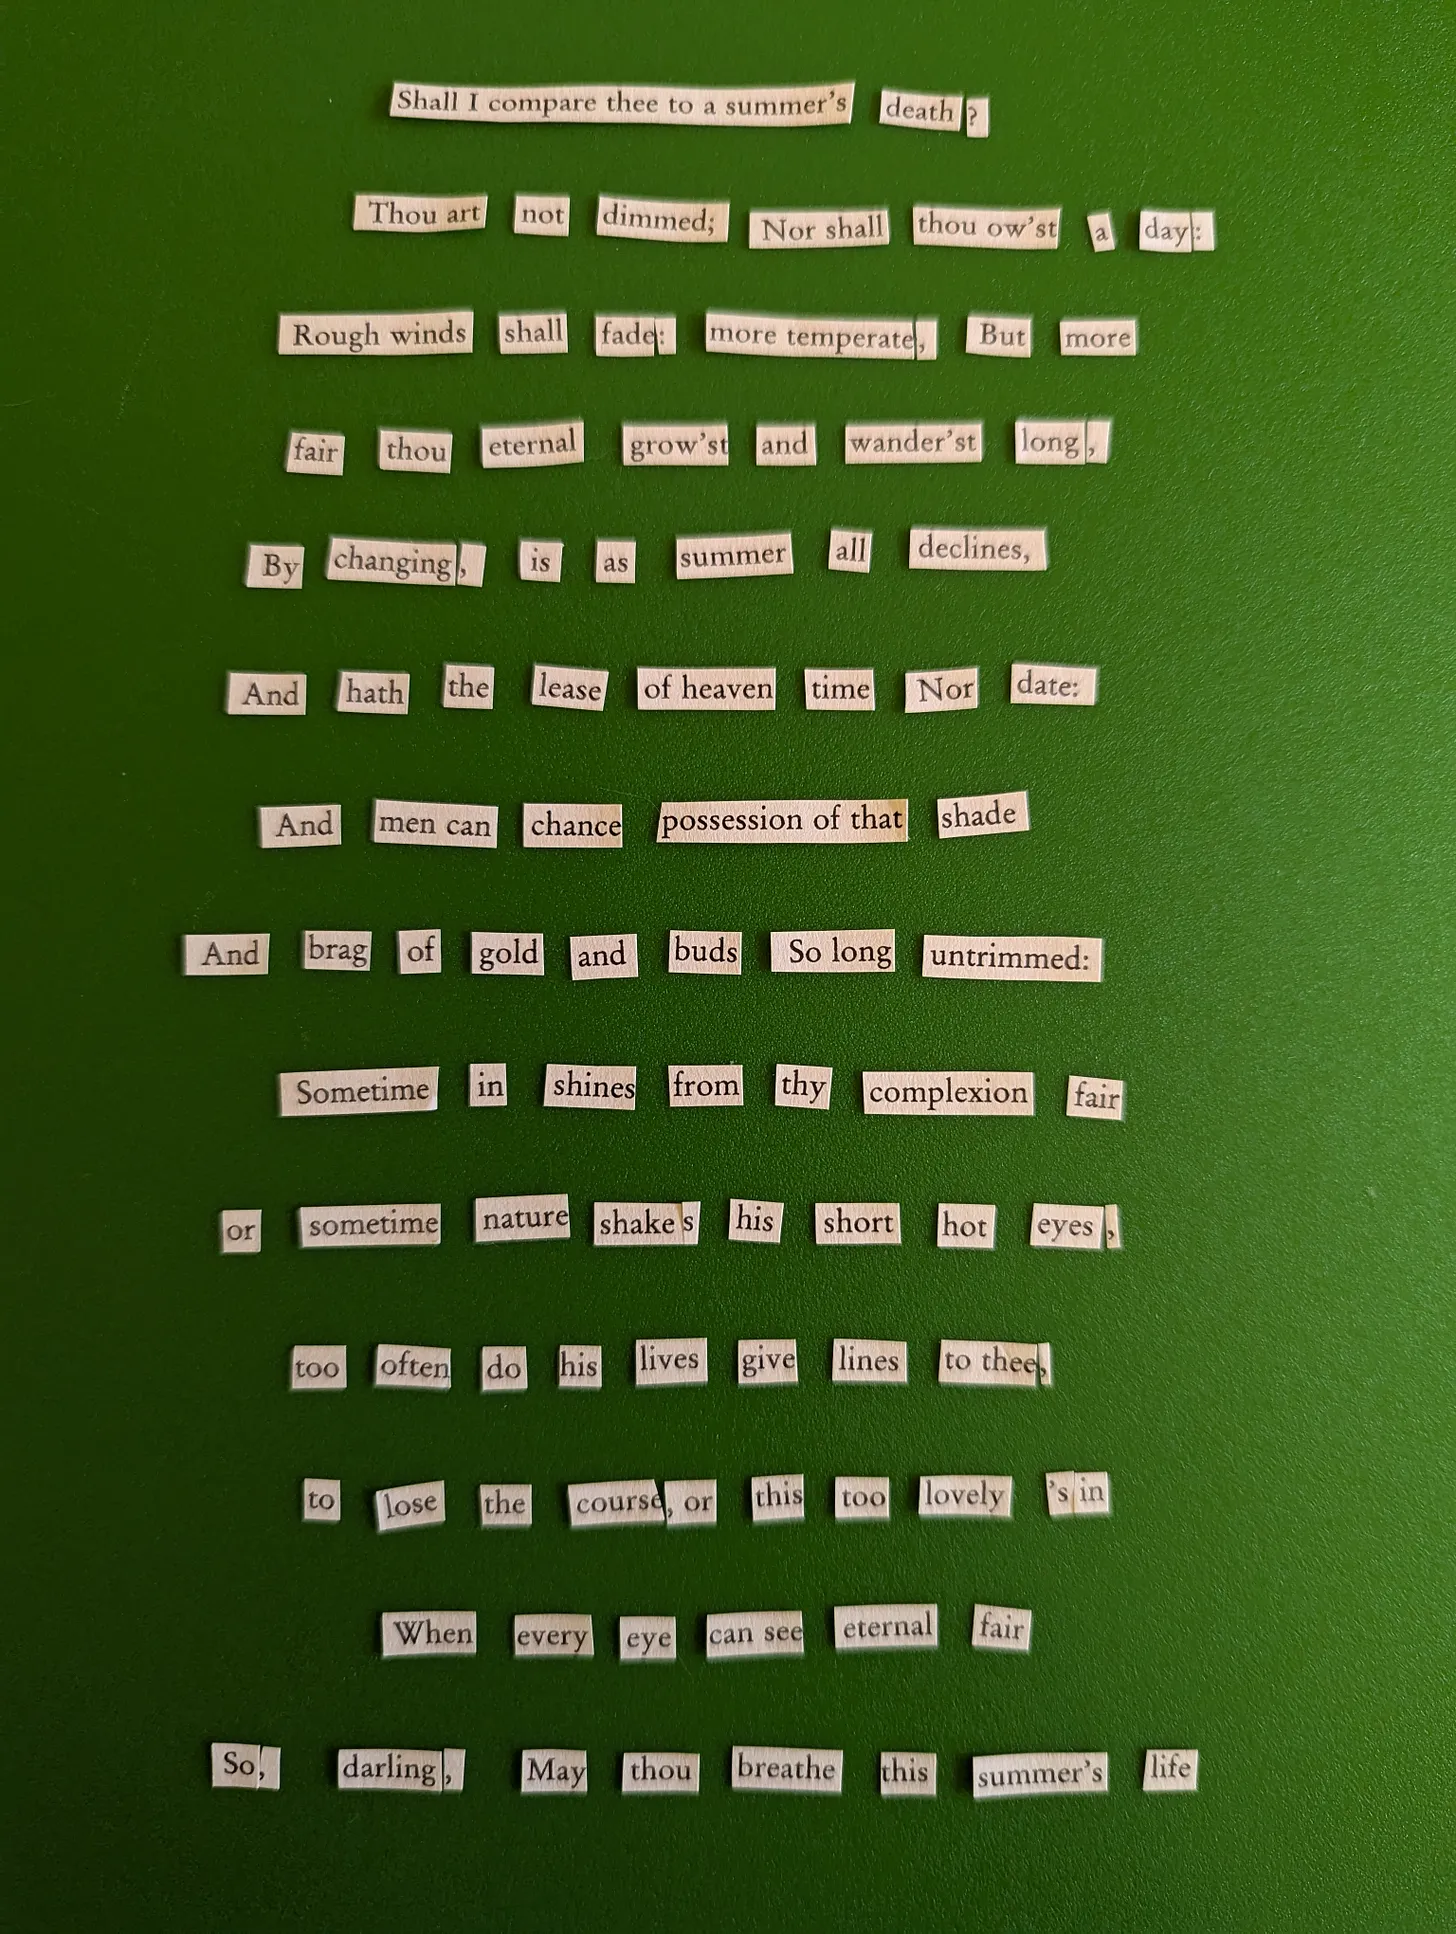 Shall I compare thee to a summer's death?
Thou art not dimmed; Nor shall thou ow'st a day:
Rough winds shall fade: more temperate, But more
fair thou eternal grow'st and wander'st long,
By changing, is as summer all declines,
And hath the lease of heaven time Nor date:
And men can chance possession of that shade
And brag of gold and buds So long untrimmed:
Sometime in shines from thy complexion fair
or sometime nature shakes his short hot eyes,
too often do his lives give lines to thee,
to lose the course, or this too lovely 's in
When every eye can see eternal fair
So, darling, May thou breathe this summer's life